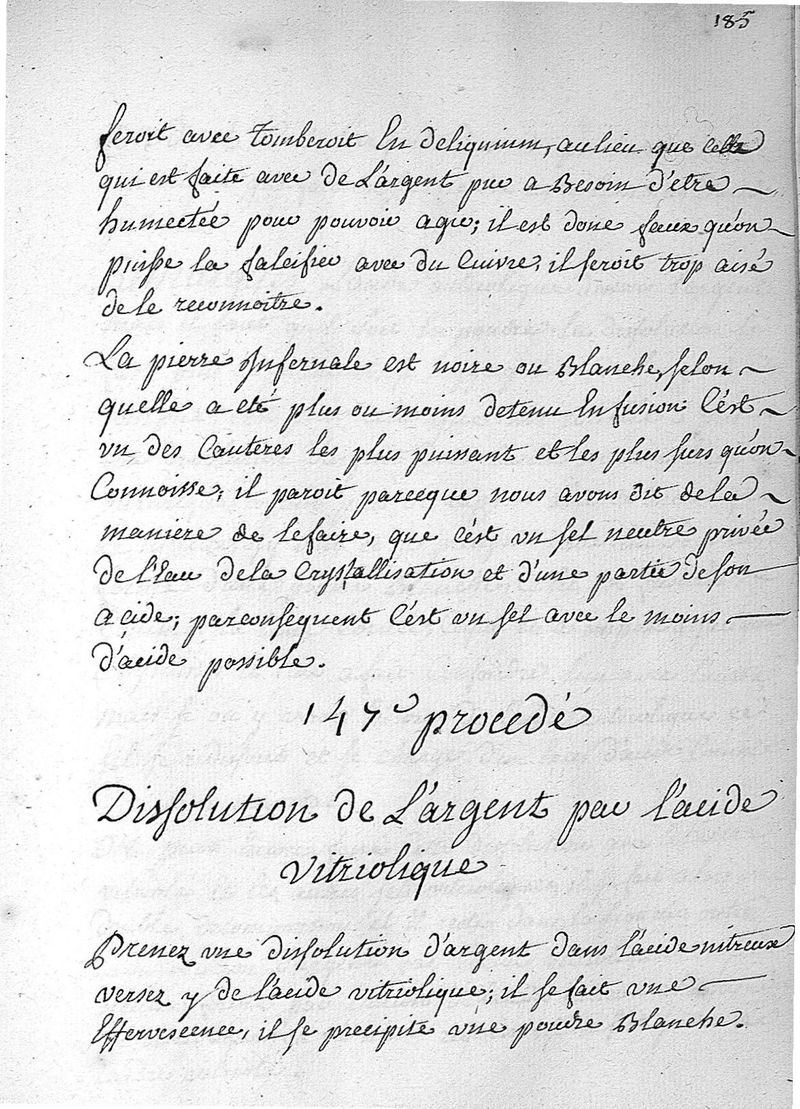 185
feroit avec tomberoit En deliquium, aulieu que celle
qui est faite avec de L'argent pur a Besoin d'etre
humectée pour pouvoir agir; il est donc faux qu'on
puisse la falcifier avec du Cuivre, il seroit trop aisé
de le reconnoitre.
La pierre Infernale est noire ou Blanche, selon
quelle a eté plus ou moins detenu En fusion. C'est
un des Cauteres les plus puissant et les plus surs qu'on
Connoisse; il paroit parceque nous avons dit de la
maniere de le faire, que c'est un sel neutre privée
de l'Eau de la Crystallisation et d'une partie de son
acide; parconsequent C'est un sel avec le moins
d'acide possible.
147e procedé
Dissolution de L'argent par l'acide
Vitriolique
Prenez une dissolution d'argent dans l'acide nitreux
versez y de l'acide vitriolique; il se fait une
Effervescence, il se precipite une poudre Blanche.